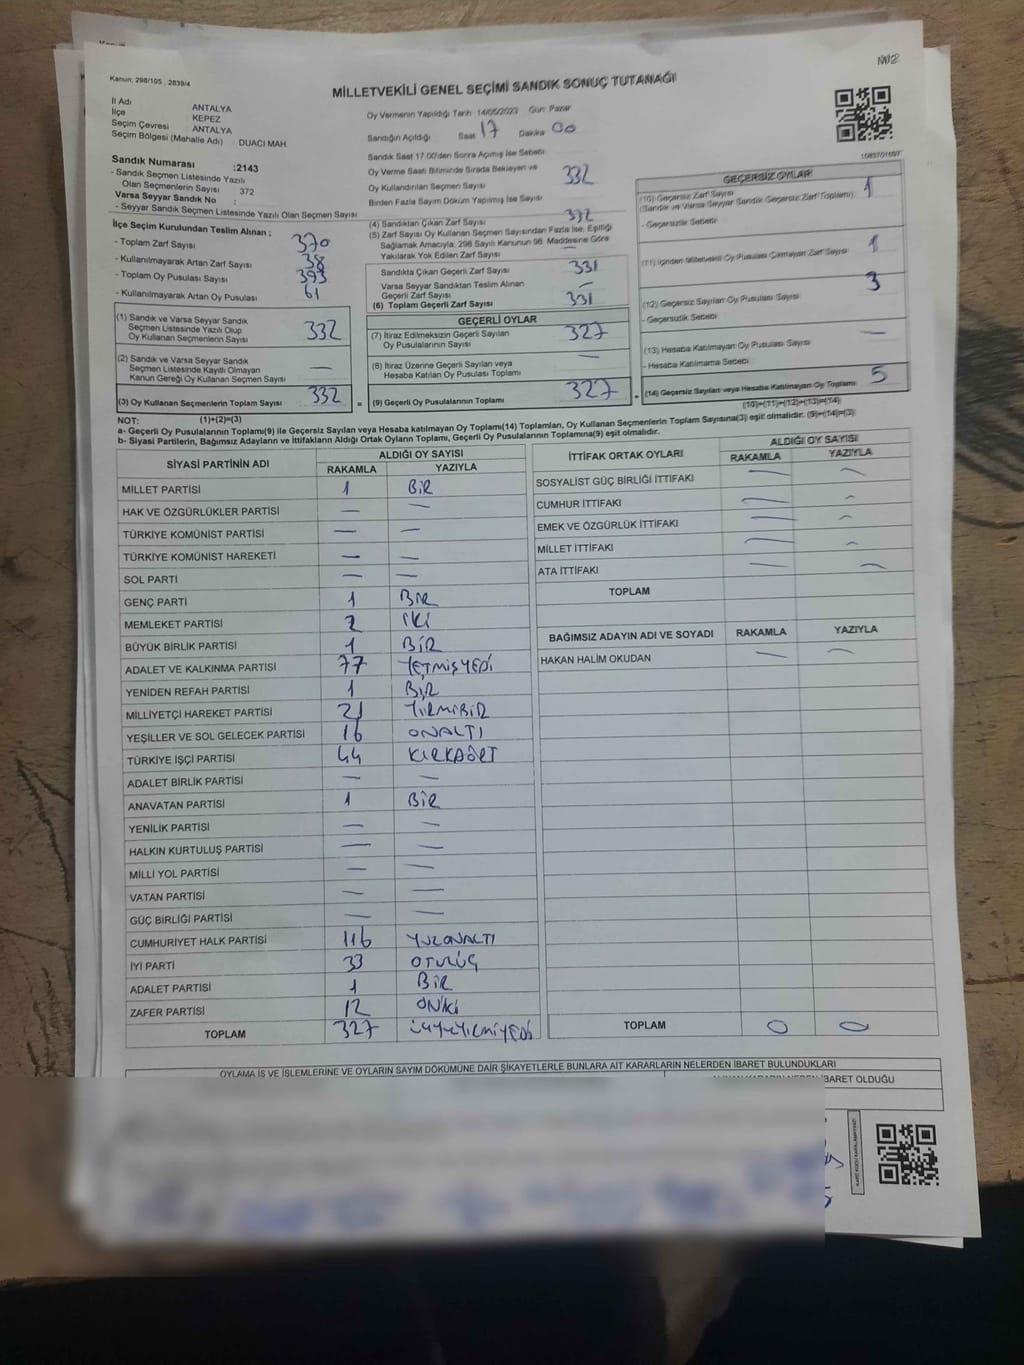 Kanun; 298/105 , 2839/4
MİLLETVEKİLİ GENEL SEÇİMİ SANDIK SONUÇ TUTANAĞI
İl Adı ANTALYA
İlçe KEPEZ
Seçim Çevresi ANTALYA
Seçim Bölgesi (Mahalle Adı) DUACI MAH
Sandık Numarası :2143
- Sandık Seçmen Listesinde Yazılı
Olan Seçmenlerin Sayısı 372
Varsa Seyyar Sandık No :
- Seyyar Sandık Seçmen Listesinde Yazılı Olan Seçmen Sayısı
İlçe Seçim Kurulundan Teslim Alınan ;
- Toplam Zarf Sayısı 370
- Kullanılmayarak Artan Zarf Sayısı 38
- Toplam Oy Pusulası Sayısı 393
- Kullanılmayarak Artan Oy Pusulası 61
(1) Sandık ve Varsa Seyyar Sandık
Seçmen Listesinde Yazılı Olup
Oy Kullanan Seçmenlerin Sayısı 332
(2) Sandık ve Varsa Seyyar Sandık
Seçmen Listesinde Kayıtlı Olmayan
Kanun Gereği Oy Kullanan Seçmen Sayısı —
(3) Oy Kullanan Seçmenlerin Toplam Sayısı 332
Oy Vermenin Yapıldığı Tarih 14/05/2023 Gün: Pazar
Sandığın Açıldığı Saat 17 Dakika 00
Sandık Saat 17:00'den Sonra Açılmış İse Sebebi:
Oy Verme Saati Bitiminde Sırada Bekleyen ve
Oy Kullandırılan Seçmen Sayısı 332
Birden Fazla Sayım Döküm Yapılmış İse Sayısı
(4) Sandıktan Çıkan Zarf Sayısı 332
(5) Zarf Sayısı Oy Kullanan Seçmen Sayısından Fazla İse, Eşitliği
Sağlamak Amacıyla, 298 Sayılı Kanunun 98. Maddesine Göre
Yakılarak Yok Edilen Zarf Sayısı —
Sandıkta Çıkan Geçerli Zarf Sayısı 331
Varsa Seyyar Sandıktan Teslim Alınan
Geçerli Zarf Sayısı —
(6) Toplam Geçerli Zarf Sayısı 331
GEÇERLİ OYLAR
(7) İtiraz Edilmeksizin Geçerli Sayılan
Oy Pusulalarının Sayısı 327
(8) İtiraz Üzerine Geçerli Sayılan veya
Hesaba Katılan Oy Pusulası Toplamı —
= (9) Geçerli Oy Pusulalarının Toplamı 327
GEÇERSİZ OYLAR
(10) Geçersiz Zarf Sayısı 1
(Sandık ve Varsa Seyyar Sandık Geçersiz Zarf Toplamı);
- Geçersizlik Sebebi
(11) İçinden Milletvekili Oy Pusulası Çıkmayan Zarf Sayısı 1
(12) Geçersiz Sayılan Oy Pusulası Sayısı 3
- Geçersizlik Sebebi
(13) Hesaba Katılmayan Oy Pusulası Sayısı —
- Hesaba Katılmama Sebebi
+ (14) Geçersiz Sayılan veya Hesaba Katılmayan Oy Toplamı 5
(10)+(11)+(12)+(13)=(14)
NOT: (1)+(2)=(3)
a- Geçerli Oy Pusulalarının Toplamı(9) ile Geçersiz Sayılan veya Hesaba katılmayan Oy Toplamı(14) Toplamları, Oy Kullanan Seçmenlerin Toplam Sayısına(3) eşit olmalıdır. (9)+(14)=(3)
b- Siyasi Partilerin, Bağımsız Adayların ve İttifakların Aldığı Ortak Oyların Toplamı, Geçerli Oy Pusulalarının Toplamına(9) eşit olmalıdır.
SİYASİ PARTİNİN ADI ALDIĞI OY SAYISI
RAKAMLA YAZIYLA
MİLLET PARTİSİ 1 BİR
HAK VE ÖZGÜRLÜKLER PARTİSİ — —
TÜRKİYE KOMÜNİST PARTİSİ — —
TÜRKİYE KOMÜNİST HAREKETİ — —
SOL PARTİ — —
GENÇ PARTİ 1 BİR
MEMLEKET PARTİSİ 2 İKİ
BÜYÜK BİRLİK PARTİSİ 1 BİR
ADALET VE KALKINMA PARTİSİ 77 YETMİŞYEDİ
YENİDEN REFAH PARTİSİ 1 BİR
MİLLİYETÇİ HAREKET PARTİSİ 21 YİRMİBİR
YEŞİLLER VE SOL GELECEK PARTİSİ 16 ONALTI
TÜRKİYE İŞÇİ PARTİSİ 44 KIRKDÖRT
ADALET BİRLİK PARTİSİ — —
ANAVATAN PARTİSİ 1 BİR
YENİLİK PARTİSİ — —
HALKIN KURTULUŞ PARTİSİ — —
MİLLİ YOL PARTİSİ — —
VATAN PARTİSİ — —
GÜÇ BİRLİĞİ PARTİSİ — —
CUMHURİYET HALK PARTİSİ 116 YUZONALTI
İYİ PARTİ 33 OTUZÜÇ
ADALET PARTİSİ 1 BİR
ZAFER PARTİSİ 12 ONİKİ
TOPLAM 327 ÜÇYÜZYİRMİYEDİ
İTTİFAK ORTAK OYLARI ALDIĞI OY SAYISI
RAKAMLA YAZIYLA
SOSYALİST GÜÇ BİRLİĞİ İTTİFAKI — —
CUMHUR İTTİFAKI — —
EMEK VE ÖZGÜRLÜK İTTİFAKI — —
MİLLET İTTİFAKI — —
ATA İTTİFAKI — —
TOPLAM
BAĞIMSIZ ADAYIN ADI VE SOYADI RAKAMLA YAZIYLA
HAKAN HALİM OKUDAN — —
TOPLAM 0 0
OYLAMA İŞ VE İŞLEMLERİNE VE OYLARIN SAYIM DÖKÜMÜNE DAİR ŞİKAYETLERLE BUNLARA AİT KARARLARIN NELERDEN İBARET BULUNDUKLARI
İBARET OLDUĞU